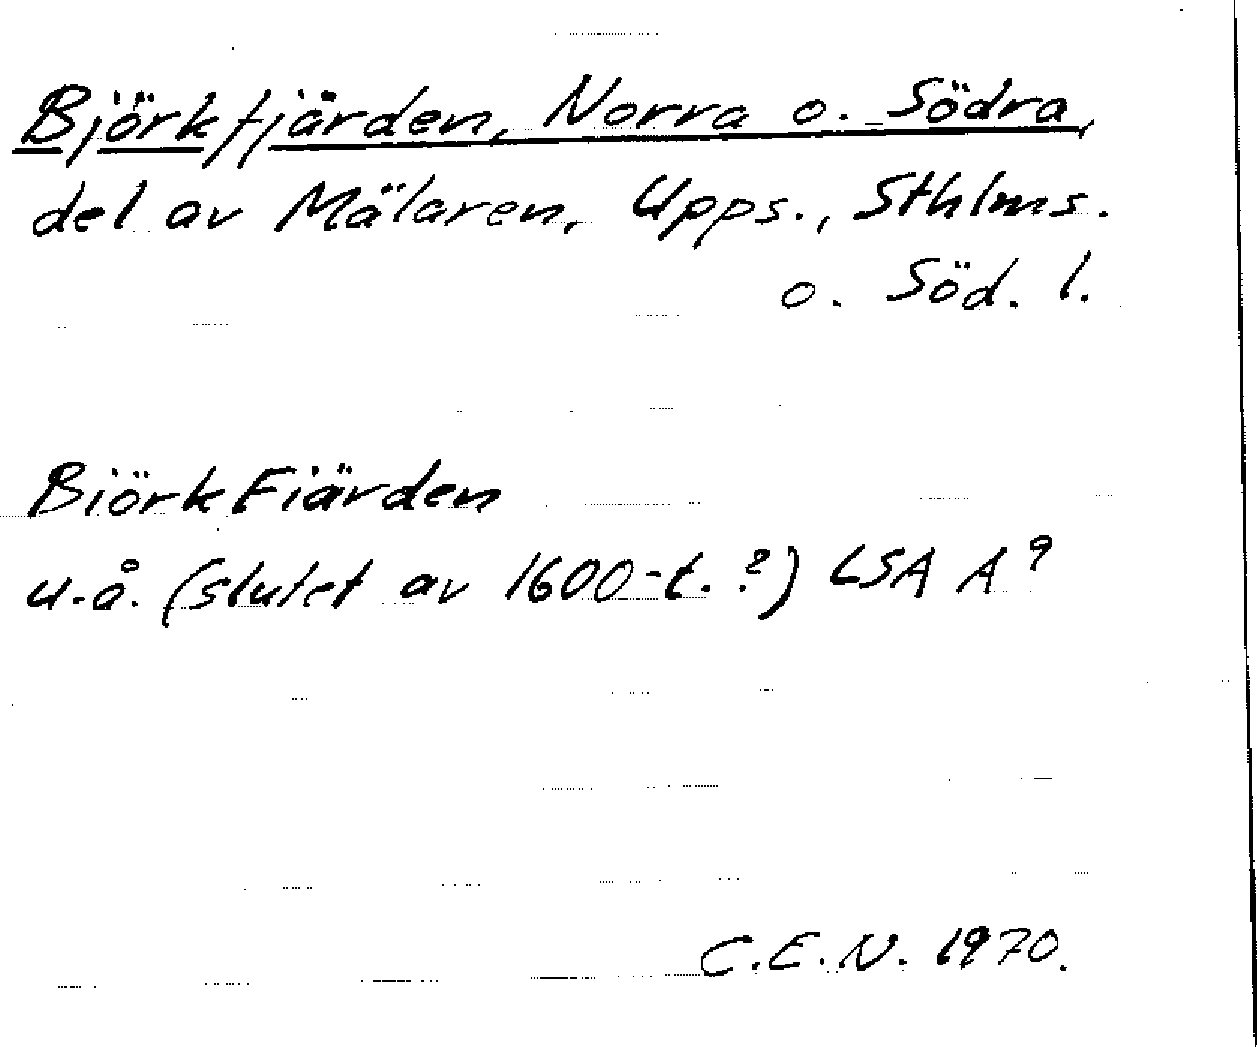 Björkfjärden, Norra o. Södra,
del av Mälaren, Upps., Sthlms.
o. Söd. l.
BiörkFiärden
u.å. (slutet av 1600-t. ?) LSA A 9
C.E.N. 1970.